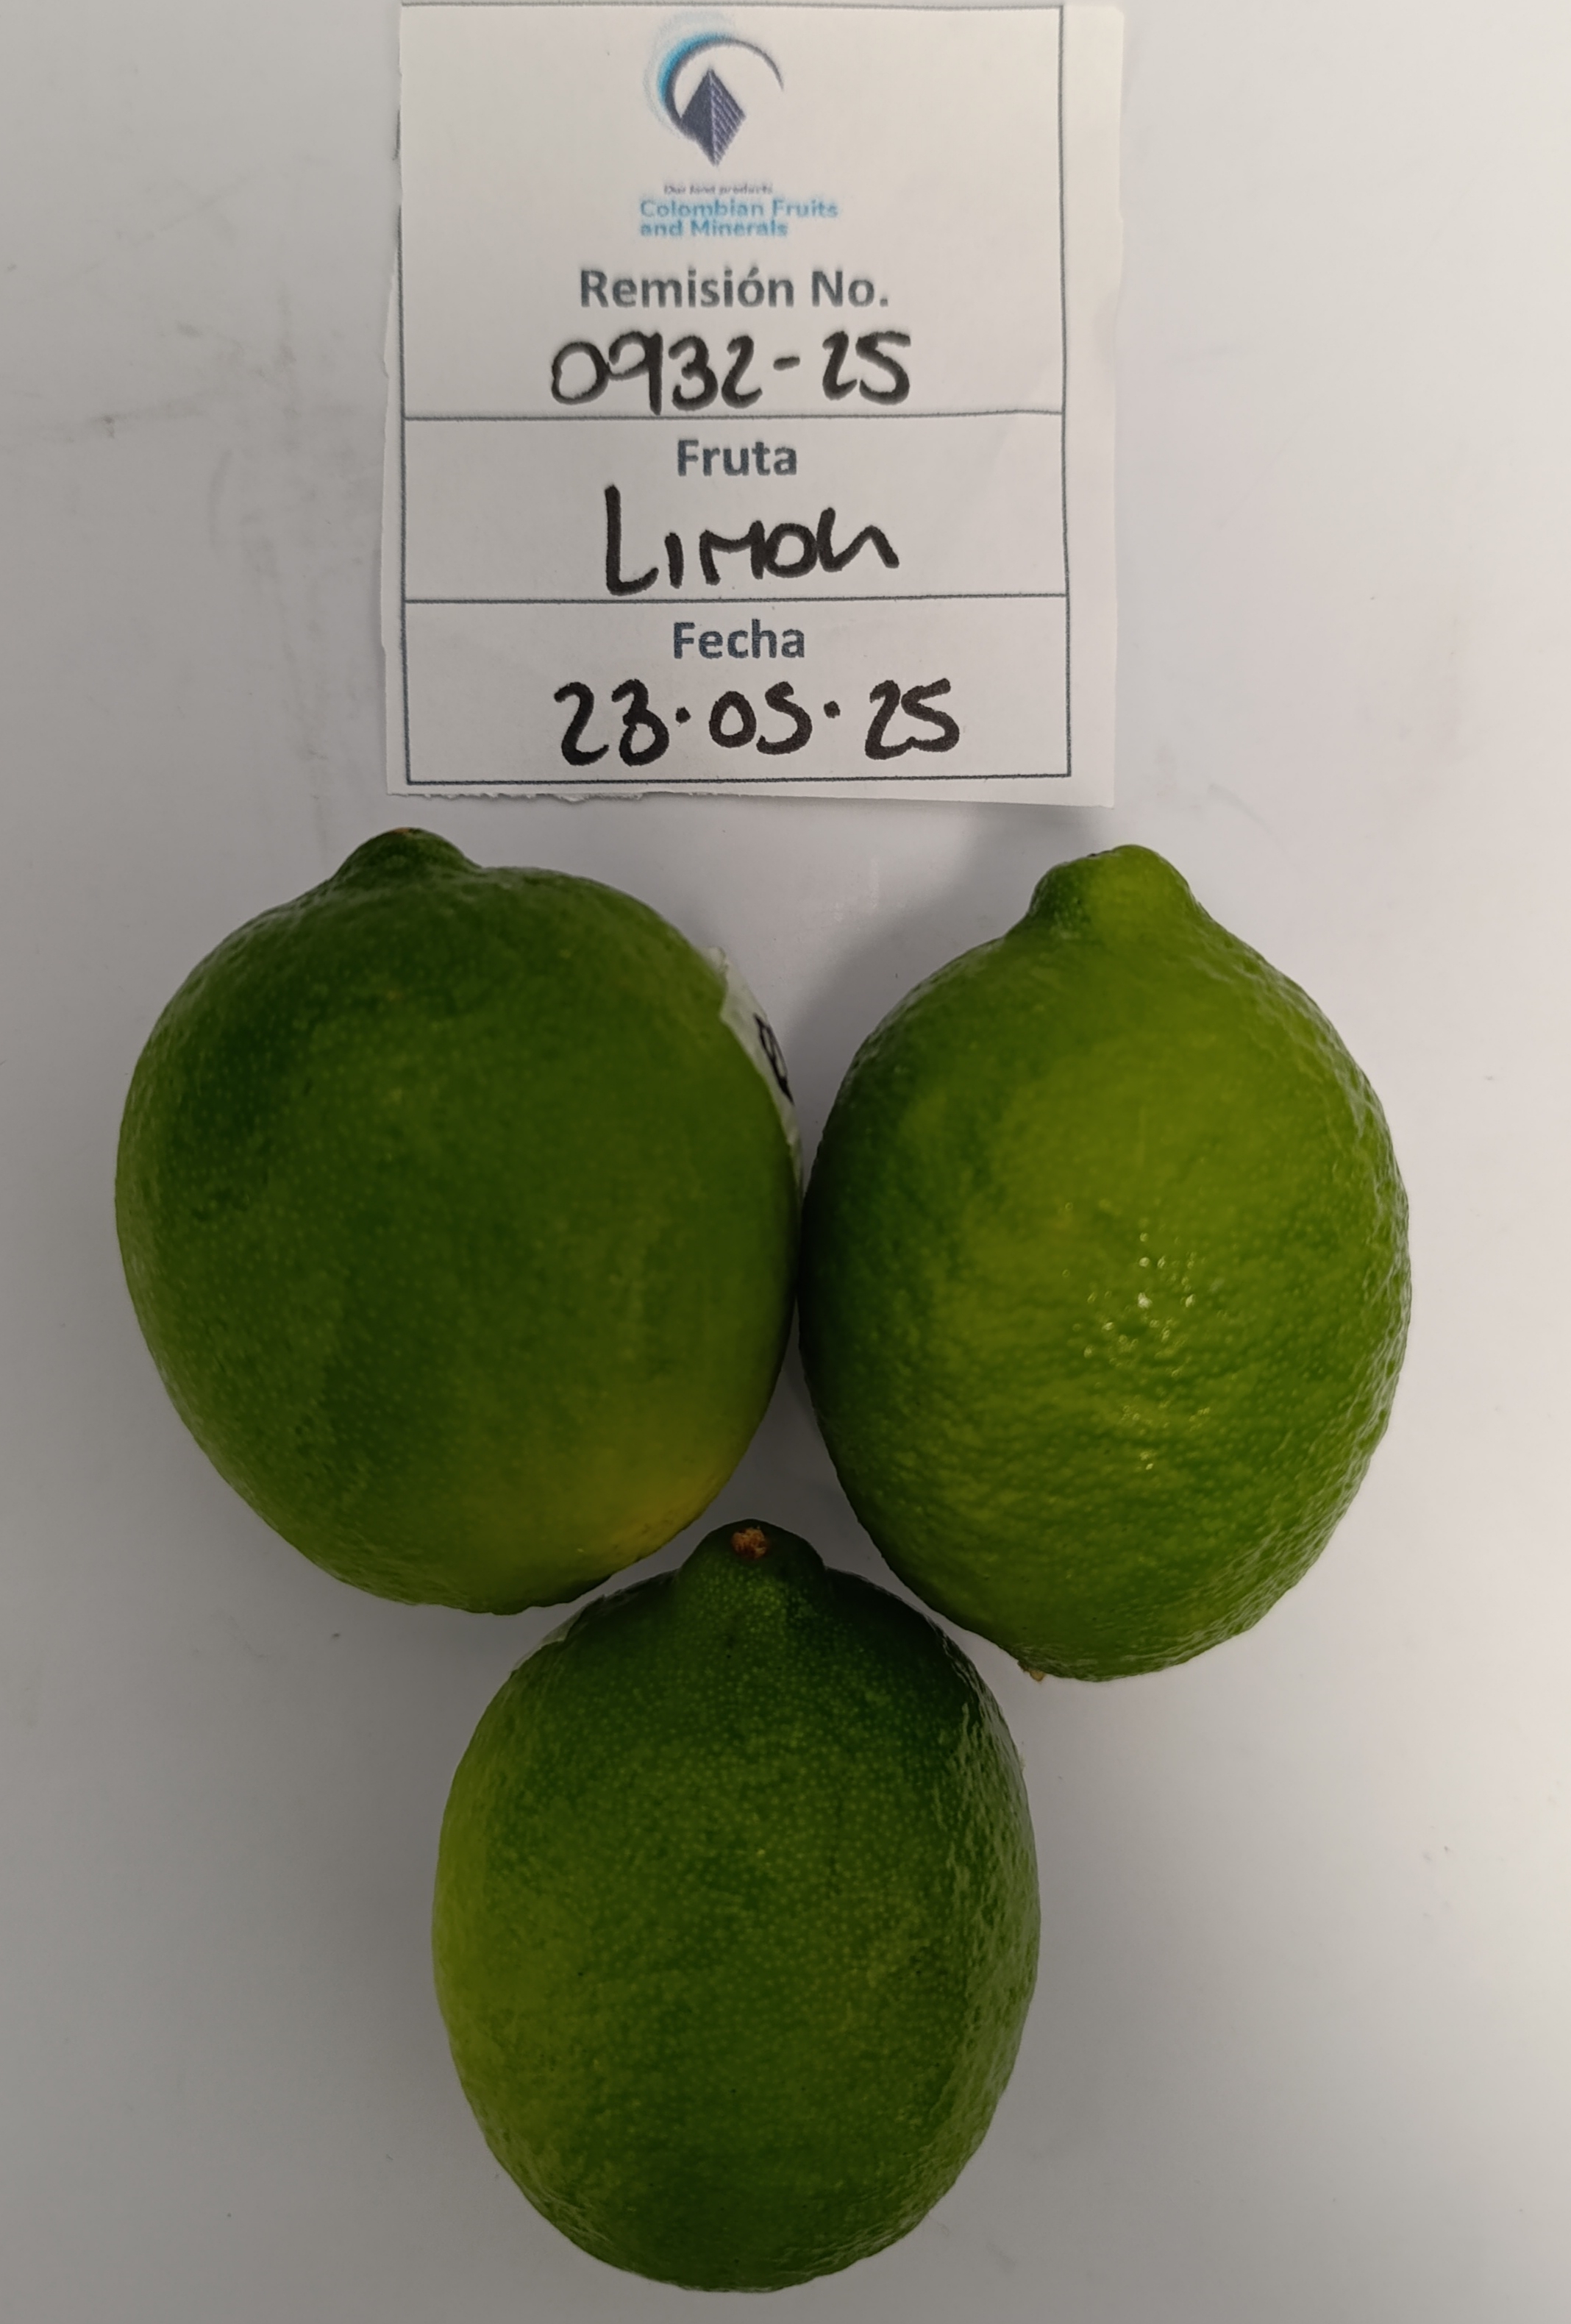 Our food products
Colombian Fruits
and Minerals
Remisión No.
0932-25
Fruta
Limon
Fecha
23.05.25